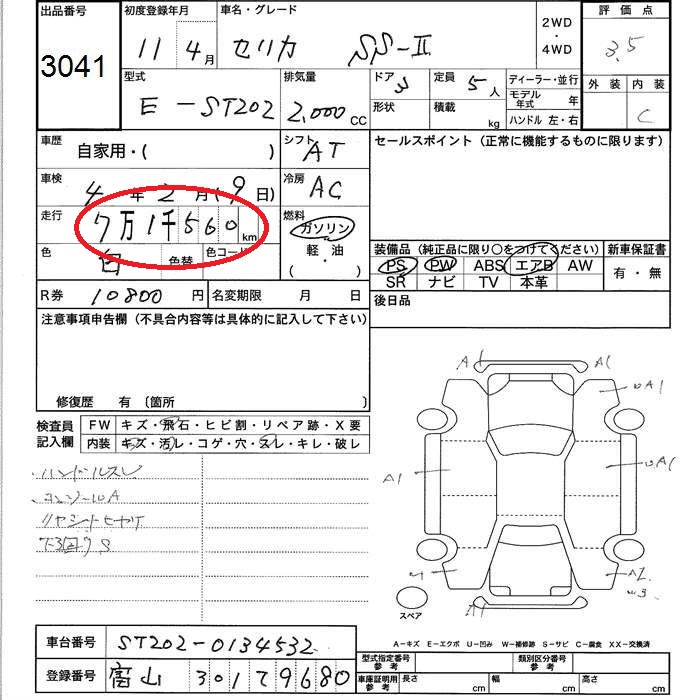 出品番号 初度登録年月 車名・グレード 2WD・4WD 評価点
3041 11年4月 セリカ SS-II 3.5
型式 排気量 ドア 3 定員 5人 ディーラー・並行 外装 内装
E-ST202 2,000CC 形状 積載 kg モデル年式 年 ハンドル 左・右 C
車歴 自家用・( ) シフト AT セールスポイント(正常に機能するものに限ります)
車検 4年2月(9日) 冷房 AC
走行 7万1千560km 燃料 ガソリン・軽油 ( )
色 白 色替 色コード
装備品(純正品に限り○をつけてください) 新車保証書
PS PW ABS エアB AW 有・無
SR ナビ TV 本革
R券 10800円 名変期限 月 日 後日品
注意事項申告欄(不具合内容等は具体的に記入して下さい)
修復歴 有 〔箇所 〕
検査員記入欄 FW キズ・飛石・ヒビ割・リペア跡・X要
内装 キズ・汚レ・コゲ・穴・スレ・キレ・破レ
A1 A1
A1
A1
A1
A2
W3
ハンドルスレ
スペア
A-キズ E-エクボ U-凹み W-補修跡 S-サビ C-腐食 XX-交換済
車台番号 ST202-0134532
登録番号 富山 301 79680
型式指定番号 参考 類別区分番号 参考
車庫証明用 参考 長さ cm 幅 cm 高さ cm